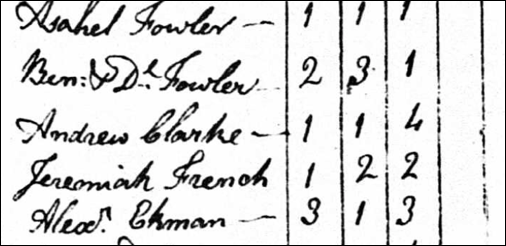 Asahel Fowler — 1 1 1
Ben: & D.l Fowler 2 3 1
Andrew Clarke — 1 1 4
Jeremiah French 1 2 2
Alexr. Ekman — 3 1 3